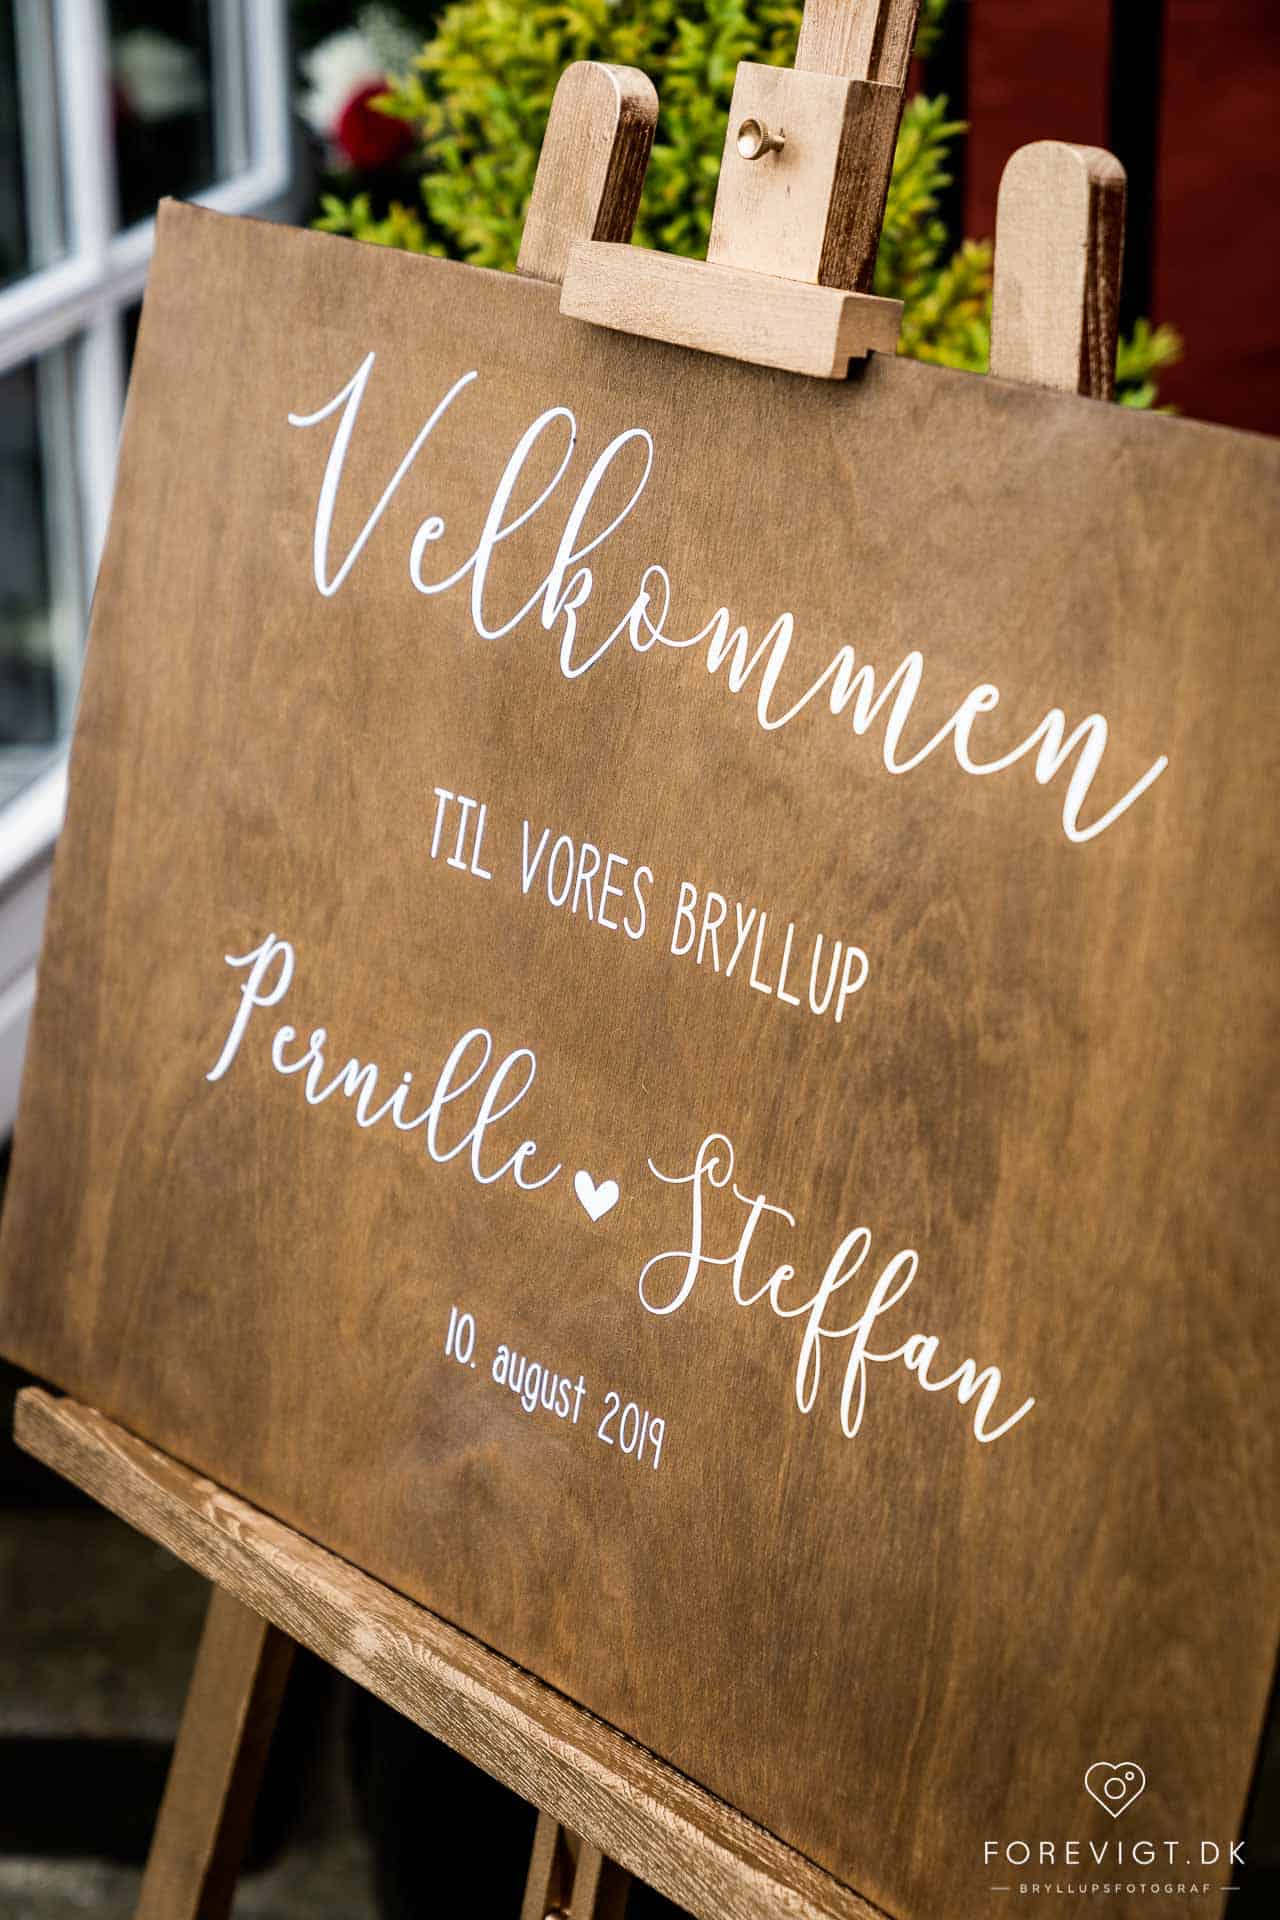 Velkommen
TIL VORES BRYLLUP
Pernille ♥ Steffan
10. august 2019
FOREVIGT.DK
BRYLLUPSFOTOGRAF